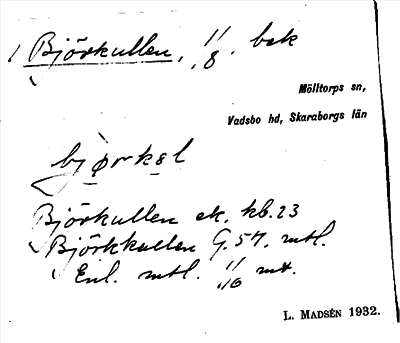 Björkullen, 1/8. bek
Mölltorps sn,
Vadsbo hd, Skaraborgs län
bjørkel
Björkullen ek. kb. 23
Björkkullen G. 57. mtl.
Enl. mtl. 1/16 mt.
L. MADSÉN 1932.